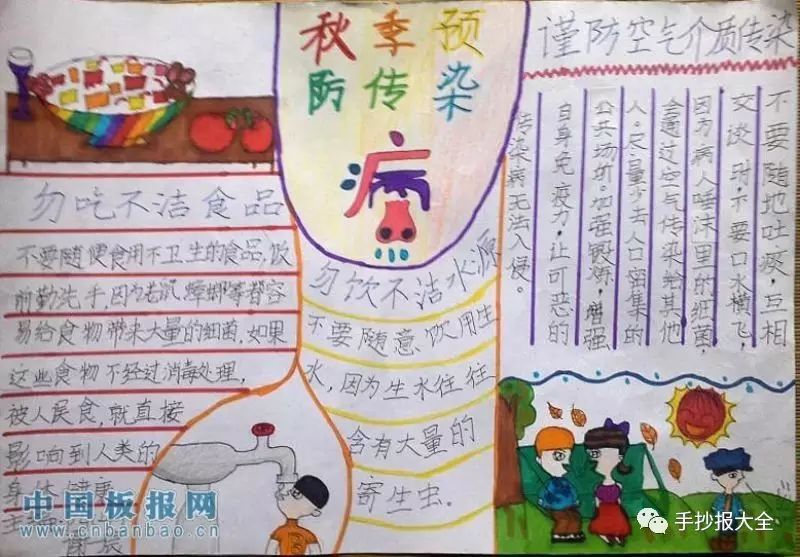 秋季预
防传染
病
勿吃不洁食品
不要随便食用不卫生的食品,饭
前勤洗手,因为老鼠,蟑螂等都容
易给食物带来大量的细菌,如果
这些食物不经过消毒处理,
被人民食,就直接
影响到人类的
身体健康
勿饮不洁水源
不要随意饮用生
水,因为生水往往
含有大量的
寄生虫.
谨防空气介质传染
不要随地吐痰,互相
交谈时,不要口水横飞,
因为病人唾沫里的细菌,
会通过空气传染给其他
人。尽量少去人口密集的
公共场所。加强锻炼,增强
自身免疫力,让可恶的
传染病无法入侵。
中国板报网
www.cnbanbao.cn
手抄报大全